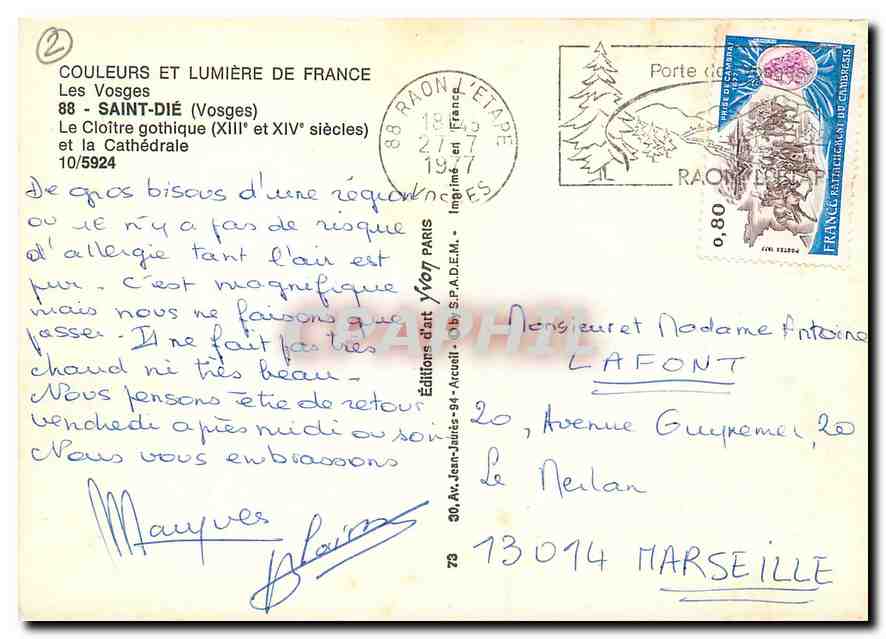 2
COULEURS ET LUMIÈRE DE FRANCE
Les Vosges
88 - SAINT-DIÉ (Vosges)
Le Cloître gothique (XIIIe et XIVe siècles)
et la Cathédrale
10/5924
De gros bisous d'une région
ou il n'y a pas de risque
d'allergie tant l'air est
pur. C'est magnifique
mais nous ne faisons que
passer. Il ne fait pas très
chaud ni très beau.
Nous pensons être de retour
vendredi après midi ou soir
Nous vous embrassons
Maryves
Alain
Éditions d'art yvon PARIS
73 30, Av. Jean-Jaurès - 94 - Arcueil - © by S.P.A.D.E.M. - Imprimé en France
88 RAON L'ETAPE
18H45
27-7
1977
VOSGES
Porte des Vosges
RAON L'ETAPE
PRISE DE CAMBRAI
1677
FRANCE RATTACHEMENT DU CAMBRESIS
0,80
POSTES 1977
CPAPHIL
Monsieur et Madame Antoine
LAFONT
20, Avenue Guynemer, 20
Le Merlan
13014 MARSEILLE